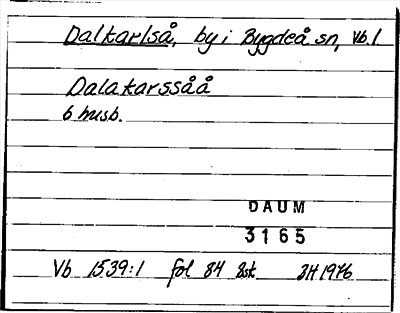 Dalkarlså, by i Bygdeå sn, Vb. l.
Dalakarssåå
6 husb.
DAUM
3165
Vb 1539:1 fol 84 Bst. 3H 1976